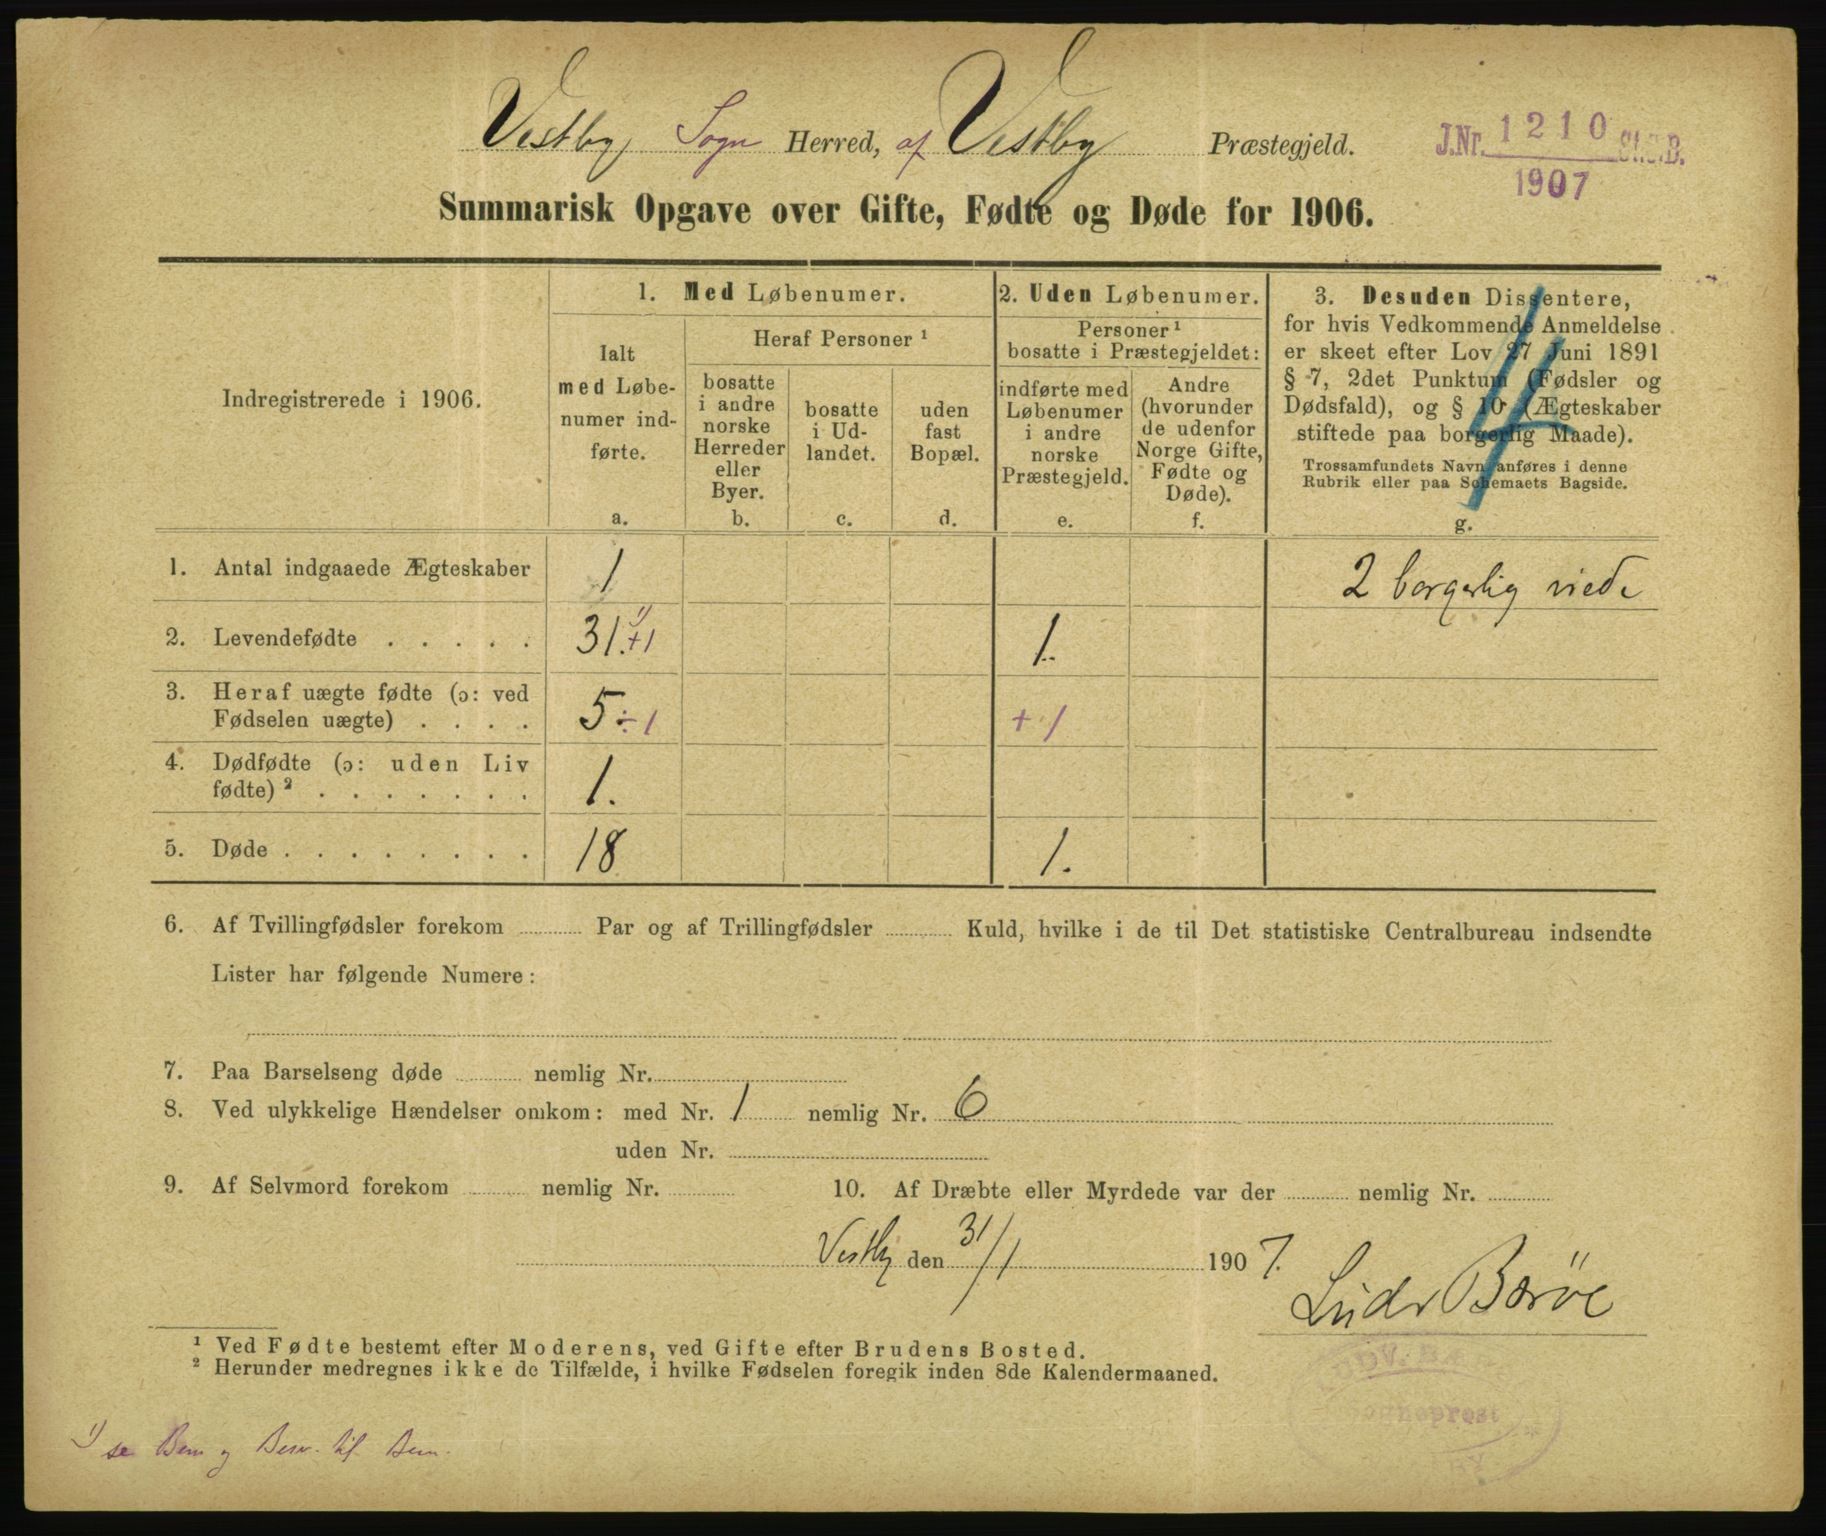 Vestby Sogn Herred, af Vestby Præstegjeld.
J.Nr. 1210 St.C.B.
1907
Summarisk Opgave over Gifte, Fødte og Døde for 1906.
Indregistrerede i 1906.
1. Med Løbenumer.
Ialt
med Løbe-
numer ind-
førte.
a.
Heraf Personer ¹
bosatte
i andre
norske
Herreder
eller
Byer.
b.
bosatte
i Ud-
landet.
c.
uden
fast
Bopæl.
d.
2. Uden Løbenumer.
Personer ¹
bosatte i Præstegjeldet:
indførte med
Løbenumer
i andre
norske
Præstegjeld.
e.
Andre
(hvorunder
de udenfor
Norge Gifte,
Fødte og
Døde).
f.
3. Desuden Dissentere,
for hvis Vedkommende Anmeldelse
er skeet efter Lov 27 Juni 1891
§ 7, 2det Punktum (Fødsler og
Dødsfald), og § 10 (Ægteskaber
stiftede paa borgerlig Maade).
Trossamfundets Navn anføres i denne
Rubrik eller paa Schemaets Bagside.
g.
4
1. Antal indgaaede Ægteskaber 1 2 borgerlig viede
2. Levendefødte . . . . . 31. +1 ¹) 1.
3. Heraf uægte fødte (ɔ: ved
Fødselen uægte) . . . . 5 ÷1 +1
4. Dødfødte (ɔ: uden Liv
fødte) ² . . . . . . . 1.
5. Døde . . . . . . . . 18 1.
6. Af Tvillingfødsler forekom Par og af Trillingfødsler Kuld, hvilke i de til Det statistiske Centralbureau indsendte
Lister har følgende Numere:
7. Paa Barselseng døde nemlig Nr.
8. Ved ulykkelige Hændelser omkom: med Nr. 1 nemlig Nr. 6
uden Nr.
9. Af Selvmord forekom nemlig Nr. 10. Af Dræbte eller Myrdede var der nemlig Nr.
Vestby den 31/1 1907.
Ludv Barøe
¹ Ved Fødte bestemt efter Moderens, ved Gifte efter Brudens Bosted.
² Herunder medregnes ikke de Tilfælde, i hvilke Fødselen foregik inden 8de Kalendermaaned.
Sogneprest
¹) se Bem og Besv. til Bem.